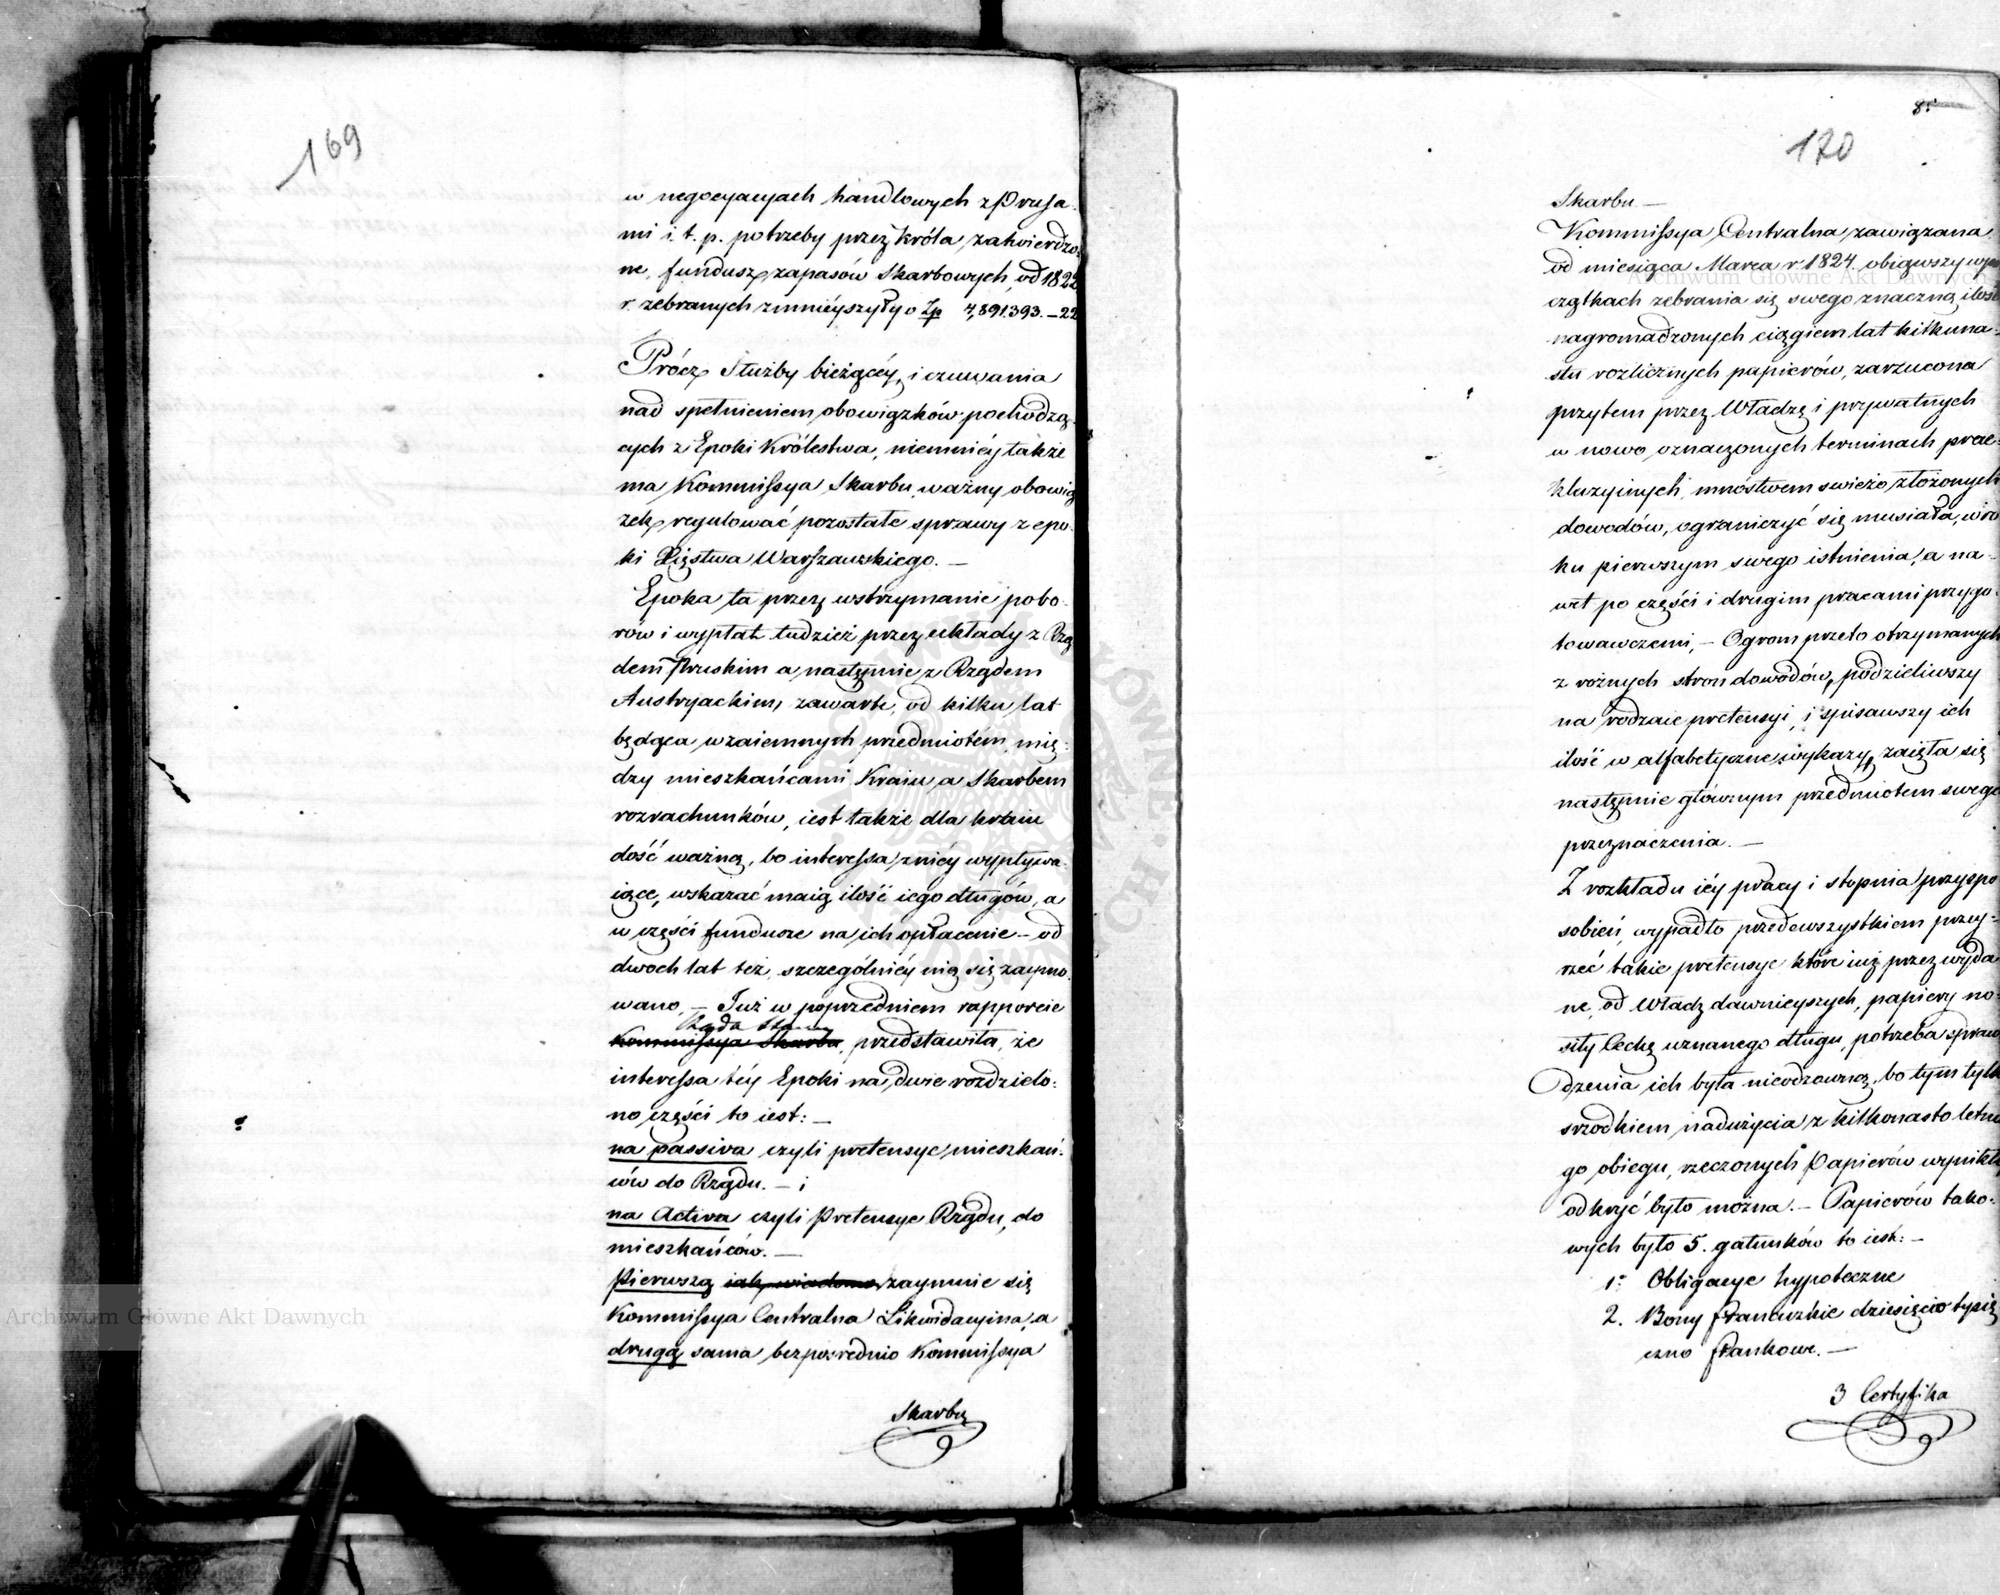 169
w negocyacyach handlowych z Prusa
mi i. t. p. potrzeby przez Króla zatwierdzo
ne, fundusz zapasów Skarbowych, od 1822
r. zebranych zmnieyszyły o Zp 4,891.393.–22
Prócz Służby bieżącéy, i czuwania
nad spełnieniem obowiązków pochodzą
cych z Epoki Królestwa, niemniéy także
ma Kommissya Skarbu, ważny obowią
zek, regulować pozostałe sprawy z epo
ki Xięstwa Warszawskiego. —
Epoka ta przez wstrzymanie pobo
rów i wypłat tudzież przez układy z Rzą
dem Pruskim a następnie z Rządem
Austryackim, zawarte, od kilku lat
będąca wzaiemnych przedmiotem mię:
dzy mieszkańcami Kraiu a Skarbem
rozrachunków, iest także dla kraiu
dość ważną, bo interessa z niéy wypływa
iące, wskazać maią ilość iego długów, a
w części fundusze na ich opłacenie – od
dwoch lat też, szczególniéy nią się zaymo
wano, — Już w poprzedniem rapporcie
Rada Stanu
Kommissya Skarbu, przedstawiła, że
interessa téy Epoki na dwie rozdzielo:
no części to iest: —
na passiva czyli pretensye mieszkań:
ców do Rządu. — i
na Activa czyli Pretensye Rządu, do
mieszkańców. —
Pierwszą iak wiadomo zaymuie się
Kommissya Centralna Likwidacyina, a
drugą sama bezpośrednio Kommissya
Skarbu
85
170
Skarbu —
Kommissya Centralna zawiązana
od miesiąca Marca r. 1824. obiąwszy w po
czątkach zebrania się swego znaczną ilość
nagromadzonych ciągiem lat kilkuna
stu rozlicznych papierów, zarzucona
przytem przez Władzę i prywatnych
w nowo oznaczonych terminach prae
kluzyinych, mnóstwem swieżo złożonych
dowodów, ograniczyć się musiała, w ro
ku pierwszym swego istnienia, a na
wet po części i drugim pracami przygo
towawczemi, — Ogrom przeto otrzymanych
z rożnych stron dowodów, podzieliwszy
na rodzaie pretensyi, i spisawszy ich
ilość w alfabetyczne wykazy, zaięła się
następnie głównym przedmiotem swego
przeznaczenia. —
Z rozkładu iéy pracy i stopnia przyspo
sobień, wypadło przedewszystkiem przey
rzeć takie pretensye które iuż przez wyda
ne, od Władz dawnieyszych, papiery no
siły Cechę uznanego długu, potrzeba spraw
dzenia ich była nieodzowną, bo tym tylko
srzodkiem nadużycia z kilkonasto letnie
go obiegu, rzeczonych Papierów wynikłe
odkryć było można. — Papierów tako
wych było 5. gatunków to iest: —
1º Obligacye hypoteczne
2. Bony francuzkie dziesięcio tysią
czno frankowe. —
3 Certyfika
Archiwum Główne Akt Dawnych
Archiwum Główne Akt Dawnych